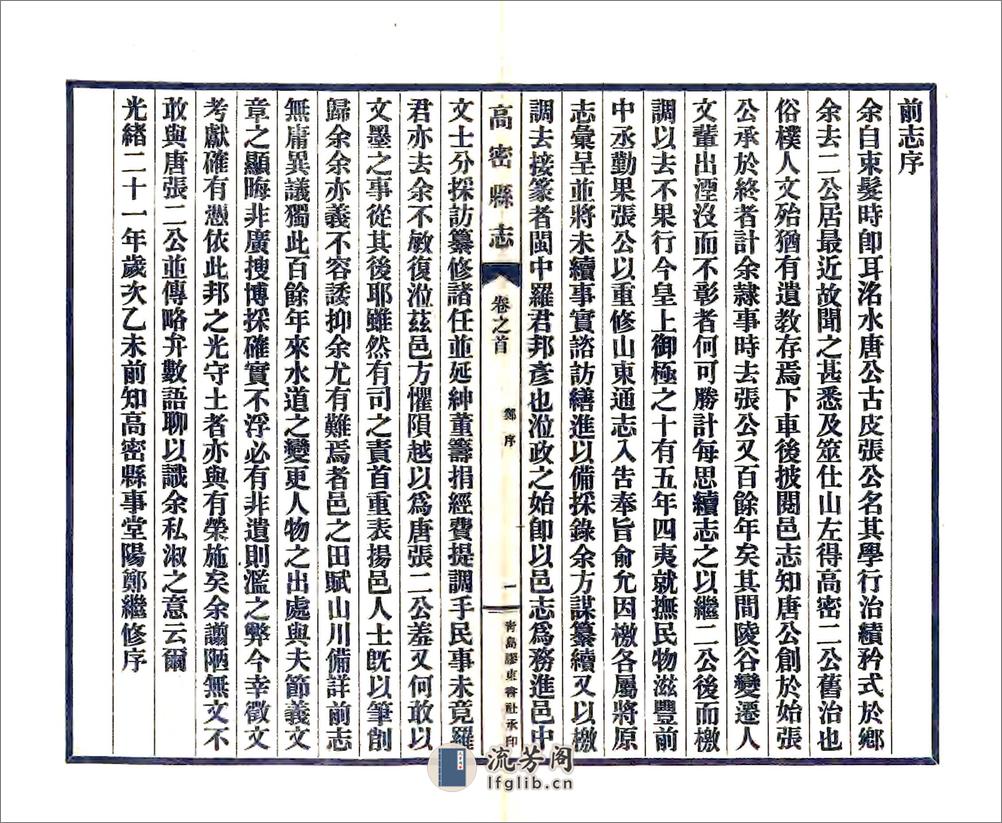 前志序
余自束髮時卽耳洺水唐公古皮張公名其學行治績矜式於鄉
余去二公居最近故聞之甚悉及筮仕山左得高密二公舊治也
俗樸人文殆猶有遺敎存焉下車後披閱邑志知唐公創於始張
公承於終者計余隷事時去張公又百餘年矣其間陵谷變遷人
文輩出湮沒而不彰者何可勝計每思續志之以繼二公後而檄
調以去不果行今皇上御極之十有五年四夷就撫民物滋豐前
中丞勤果張公以重修山東通志入告奉旨俞允因檄各屬將原
志彙呈並將未續事實諮訪繕進以備採錄余方謀纂續又以檄
調去接篆者閩中羅君邦彥也涖政之始卽以邑志爲務進邑中
高密縣志
卷之首
鄭序
一
靑島膠東書社承印
文士分採訪纂修諸任並延紳董籌捐經費提調手民事未竟羅
君亦去余不敏復涖茲邑方懼隕越以爲唐張二公羞又何敢以
文墨之事從其後耶雖然有司之責首重表揚邑人士旣以筆削
歸余余亦義不容諉抑余尤有難焉者邑之田賦山川備詳前志
無庸異議獨此百餘年來水道之變更人物之出處與夫節義文
章之顯晦非廣搜博採確實不浮必有非遺則濫之弊今幸徵文
考獻確有憑依此邦之光守土者亦與有榮施矣余譾陋無文不
敢與唐張二公並傳略弁數語聊以識余私淑之意云爾
光緒二十一年歲次乙未前知高密縣事堂陽鄭繼修序
流芳阁
lfglib.cn